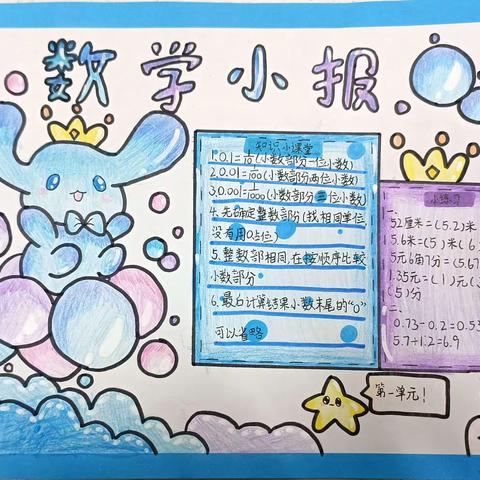 数学小报
知识小课堂
1.0.1=1/10(小数部分一位小数)
2.0.01=1/100(小数部分两位小数)
3.0.001=1/1000(小数部分三位小数)
4.先确定整数部分(找相同单位
没有用0占位)
5.整数部相同,在按顺序比较
小数部分
6.最后计算结果小数末尾的"0"
可以省略
小练习
一、
52厘米=(5.2)米
5.6米=(5)米(6
5元6角7分=(5.67
1.35元=(1)元(
(5)分
二、
0.73-0.2=0.53
5.7+1.2=6.9
第一单元!